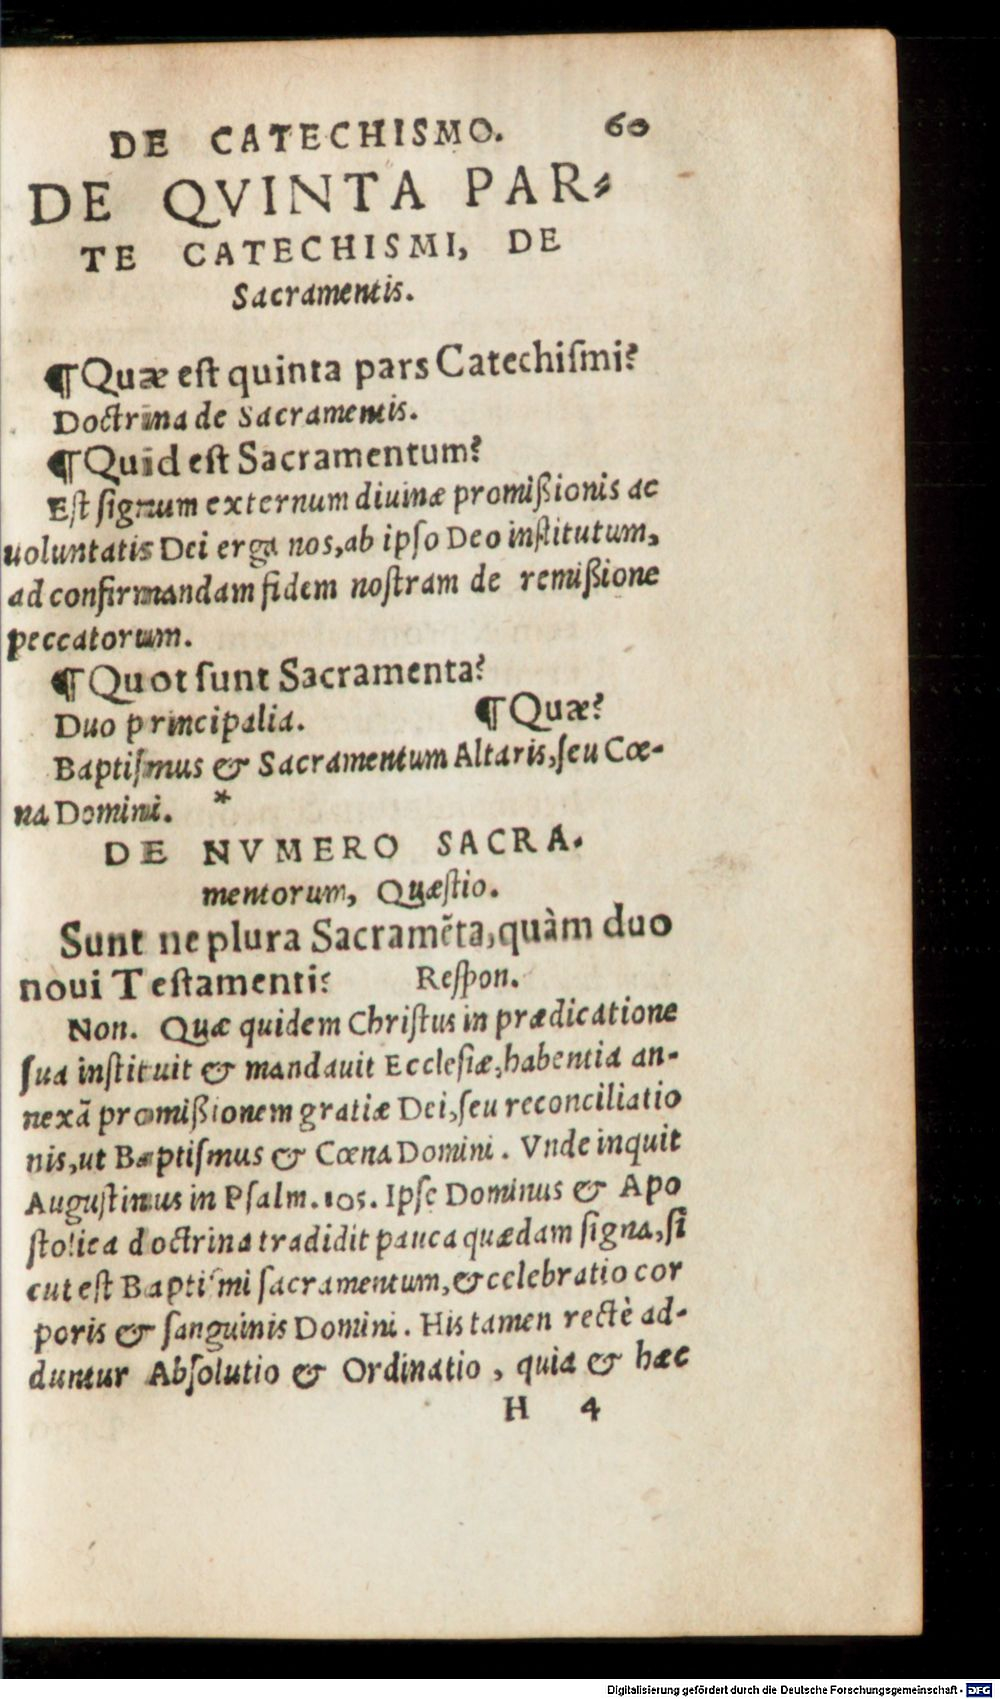 DE CATECHISMO. 60
DE QVINTA PAR-
TE CATECHISMI, DE
Sacramentis.
¶Quæ est quinta pars Catechiſmi?
Doctrina de Sacramentis.
¶Quid est Sacramentum?
Eſt ſignum externum diuinæ promißionis ac
uoluntatis Dei erga nos, ab ipſo Deo inſtitutum,
ad confirmandam fidem noſtram de remißione
peccatorum.
¶Quot ſunt Sacramenta?
Duo principalia. ¶Quæ?
Baptiſmus & Sacramentum Altaris, ſeu Cœ-
na Domini. *
DE NVMERO SACRA-
mentorum, Quæſtio.
Sunt ne plura Sacramẽta, quàm duo
noui Teſtamenti? Reſpon.
Non. Quæ quidem Chriſtus in prædicatione
ſua inſtituit & mandauit Eccleſiæ, habentia an-
nexã promißionem gratiæ Dei, ſeu reconciliatio
nis, ut Baptiſmus & Cœna Domini. Vnde inquit
Auguſtinus in Pſalm. 105. Ipſe Dominus & Apo
ſtolica doctrina tradidit pauca quædam ſigna, ſi
cut eſt Baptiſmi ſacramentum, & celebratio cor
poris & ſanguinis Domini. His tamen rectè ad-
duntur Abſolutio & Ordinatio, quia & hæc
H 4
Digitalisierung gefördert durch die Deutsche Forschungsgemeinschaft - DFG